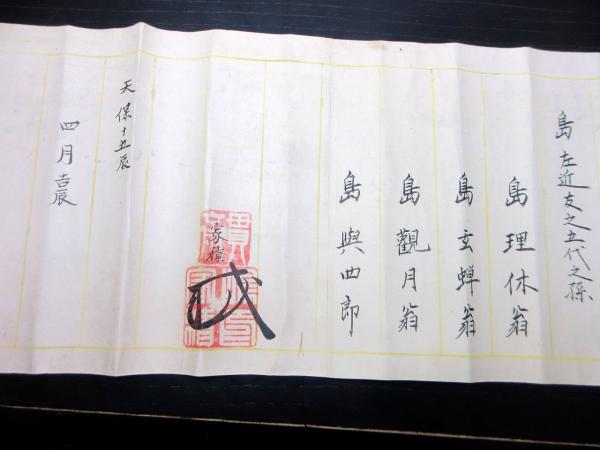 島左近友之五代之孫
島理休翁
島玄蝉翁
島觀月翁
島與四郎
家橘
天保十五辰
四月吉辰